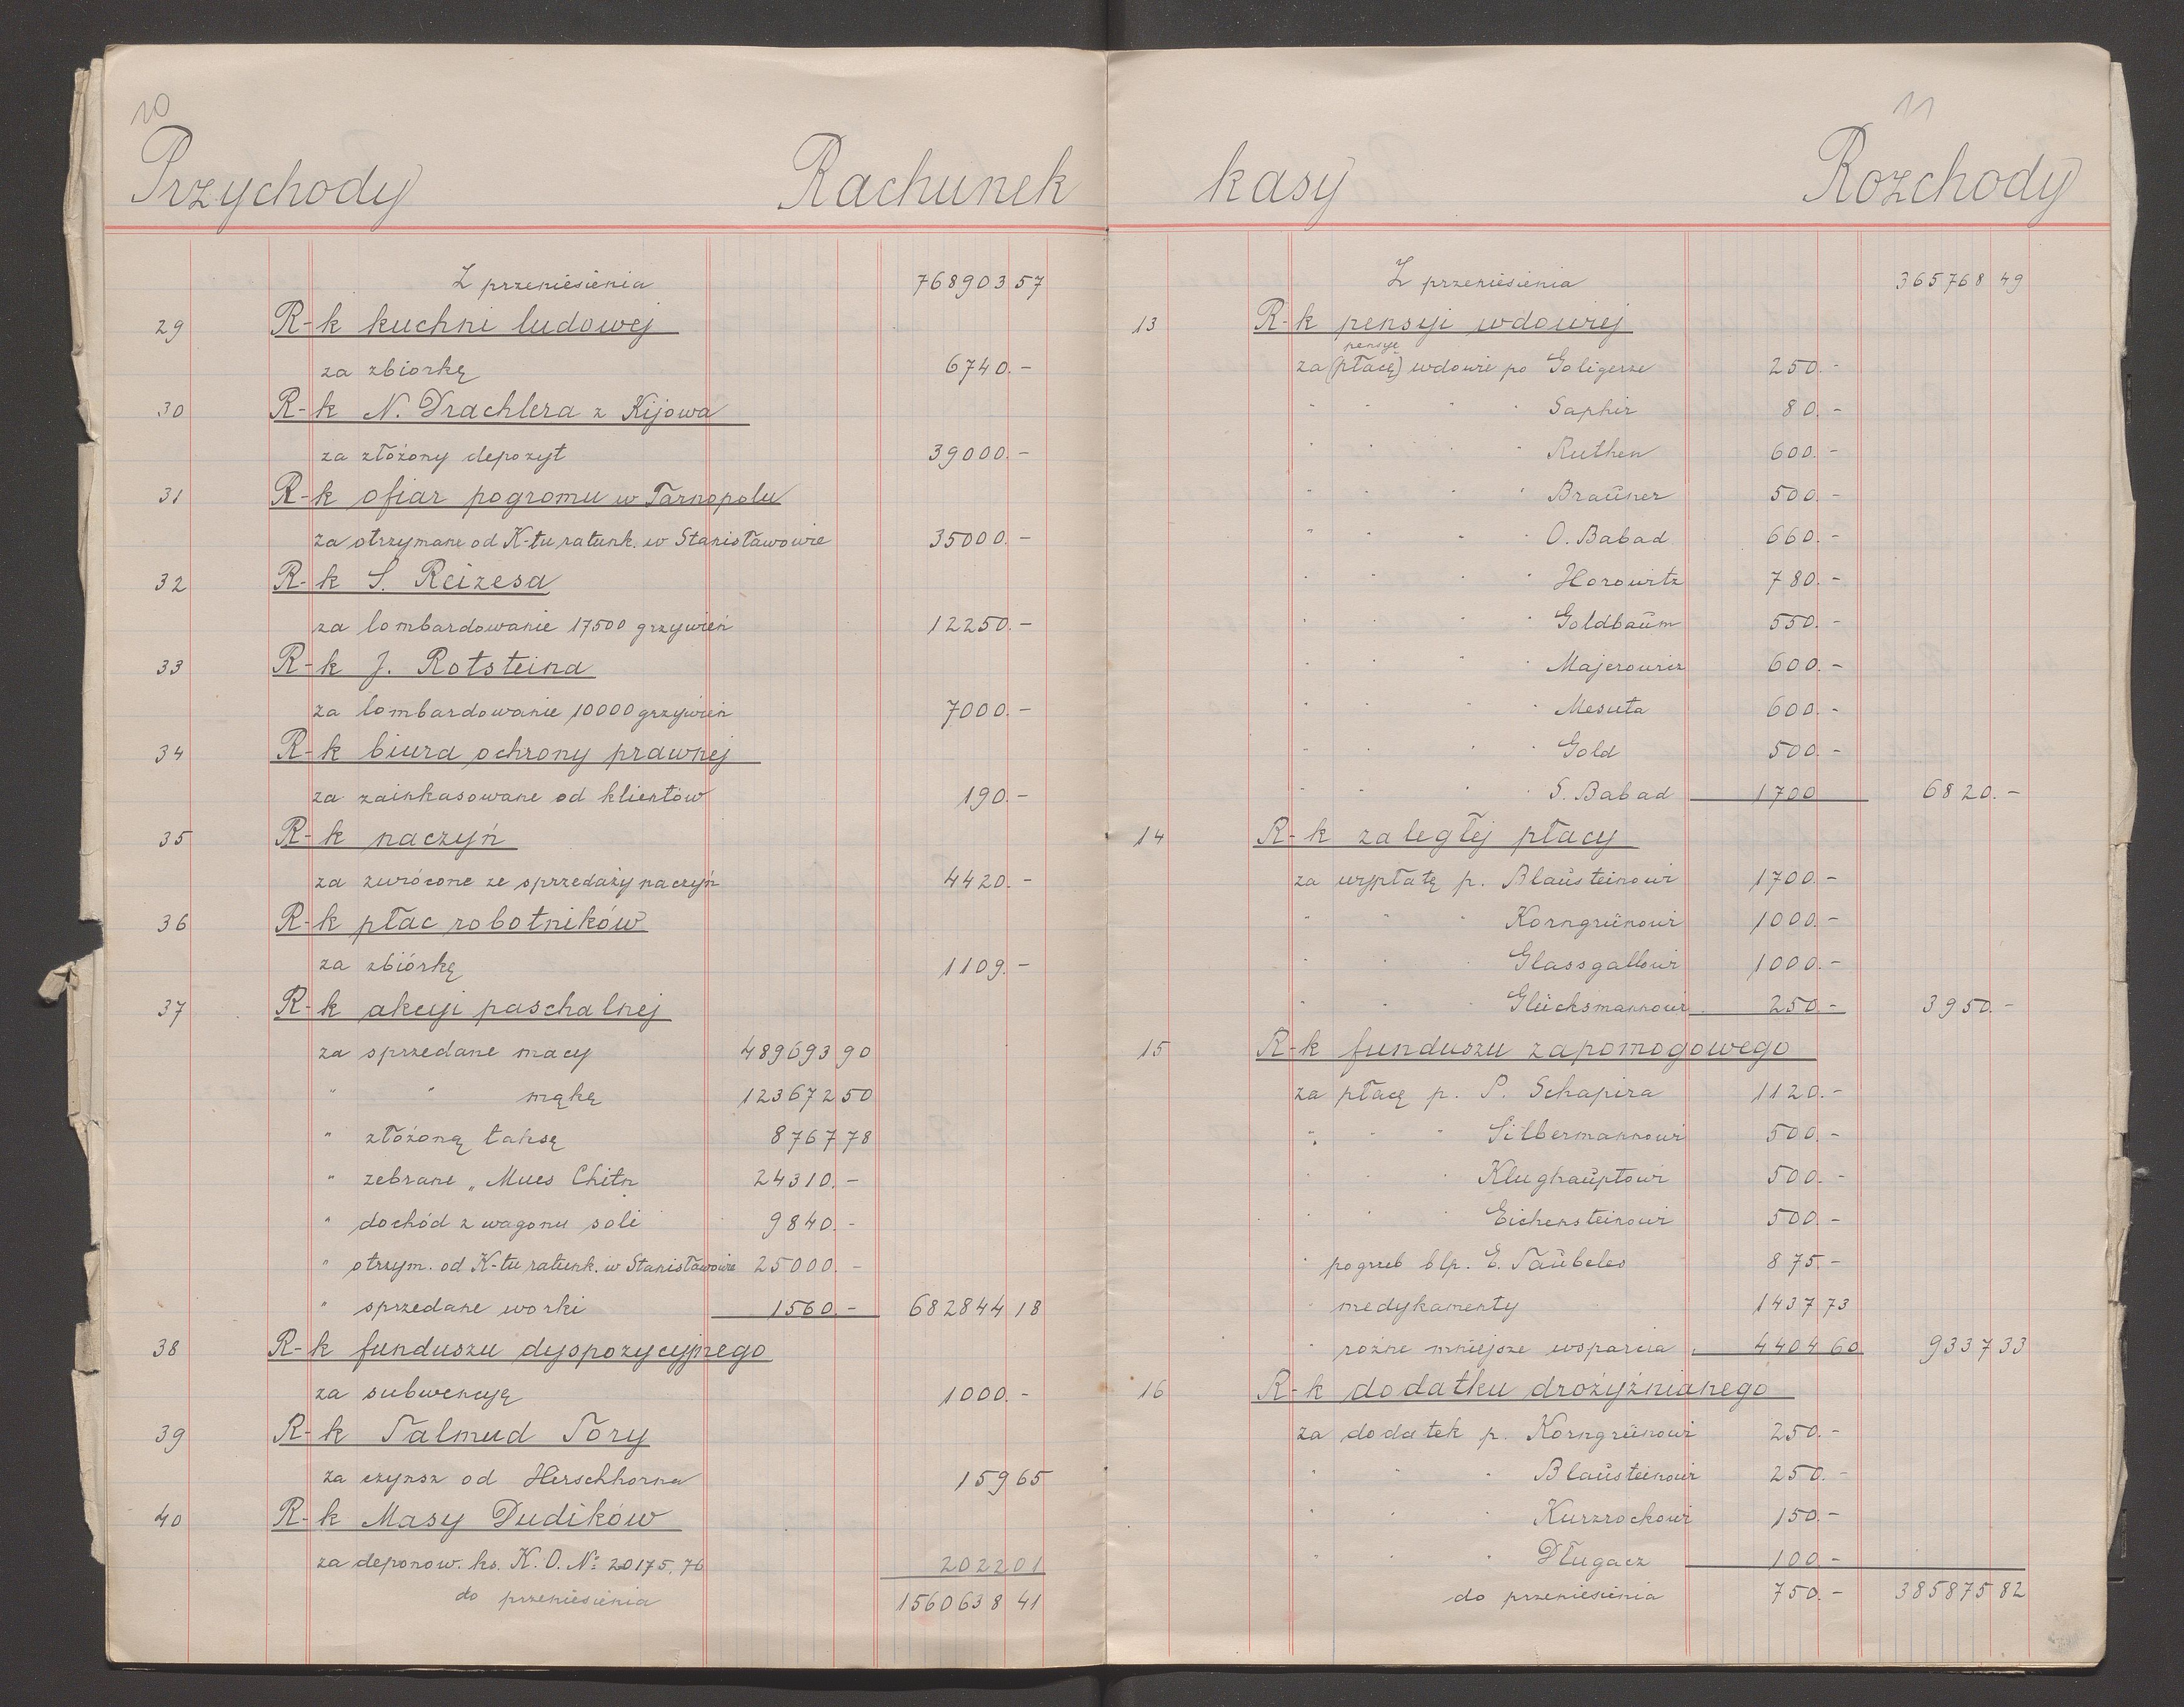 10
Przychody Rachunek
Z przeniesienia 768903 57
29 R-k kuchni ludowej
za zbiorkę 6740.-
30 R-k N. Drachlera z Kijowa
za złóżony depozyt 39000.-
31 R-k ofiar pogromu w Tarnopolu
za otrzymane od K-tu ratunk. w Stanisławowie 35000.-
32 R-k S. Reizesa
za lombardowanie 17500 grzywien 12250.-
33 R-k J. Rotsteina
za lombardowanie 10000 grzywien 7000.-
34 R-k biura ochrony prawnej
za zainkasowane od klientów 190.-
35 R-k naczyń
za zwrócone ze sprzedaży naczyń 4420.-
36 R-k płac robotników
za zbiórkę 1109.-
37 R-k akcyi paschalnej
za sprzedane macy 489693 90
" " mąkę 123672 50
" złóżoną taksę 8767 78
" zebrane „Mues Chitn 24310.-
" dochód z wagonu soli 9840.-
" otrzym. od K-tu ratunk. w Stanisławowie 25000.-
" sprzedane worki 1560.- 682844 18
38 R-k funduszu dyspozycyjnego
za subwencyę 1000.-
39 R-k Talmud Tory
za czynsz od Herschhorna 159 65
40 R-k Masy Dudików
za deponow. ks. K. O. No 20175, 76 2022 01
do przeniesienia 1560638 41
11
kasy Rozchody
Z przeniesienia 365768 49
13 R-k pensyi wdowiej
pensyę
za (płacę) wdowie po Goligerze 250.-
" " " " Saphir 80.-
" " " " Ruthen 600.-
" " " " Braŭner 500.-
" " " " O. Babad 660.-
" " " " Horowitz 780.-
" " " " Goldbaŭm 550.-
" " " " Majerowicz 600.-
" " " " Mesuta 600.-
" " " " Gold 500.-
" " " " S. Babad 1700 6820.-
14 R-k zaległej płacy
za wypłatę p. Blaŭsteinowi 1700.-
" " " Korngrünowi 1000.-
" " " Glassgallowi 1000.-
" " " Glücksmannowi 250.- 3950.-
15 R-k funduszu zapomogowego
za płacę p. P. Schapira 1120.-
" " " Silbermannowi 500.-
" " " Klughaŭptowi 500.-
" " " Eichensteinowi 500.-
" pogrzeb błp. E. Taŭbeles 875.-
" medykamenty 1437 73
" rożne mniejsze wsparcia 4404 60 9337 33
16 R-k dodatku drożyźnianego
za dodatek p. Korngrünowi 250.-
" " " Blaŭsteinowi 250.-
" " " Kurzrockowi 150.-
" " " Długacz 100.-
do przeniesienia 750.- 385875 82